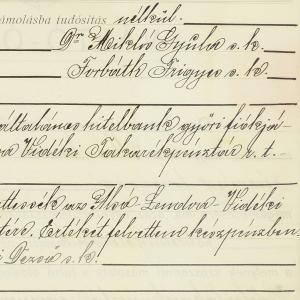 ámolásba tudósítás nélkül.
Gr Miklós Gyula s. k.
Torbáth Frigyes s. k.
általános hitelbank győri fiókjá-
a Vidéki Takarékpénztár r. t. -
ttessék, az Alsó-Lendva-Vidéki
Értékét felvettem készpénzben.
i Dezső s. k.